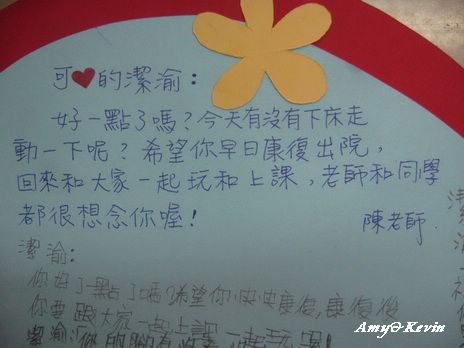 可❤的潔渝：
好一點了嗎？今天有沒有下床走
動一下呢？希望你早日康復出院，
回來和大家一起玩和上課，老師和同學
都很想念你喔！
陳老師.
潔渝：
你好了一點了嗎？希望你快快康復，康復後
你要跟大家一起上課、一起玩喔！
Amy&Kevin